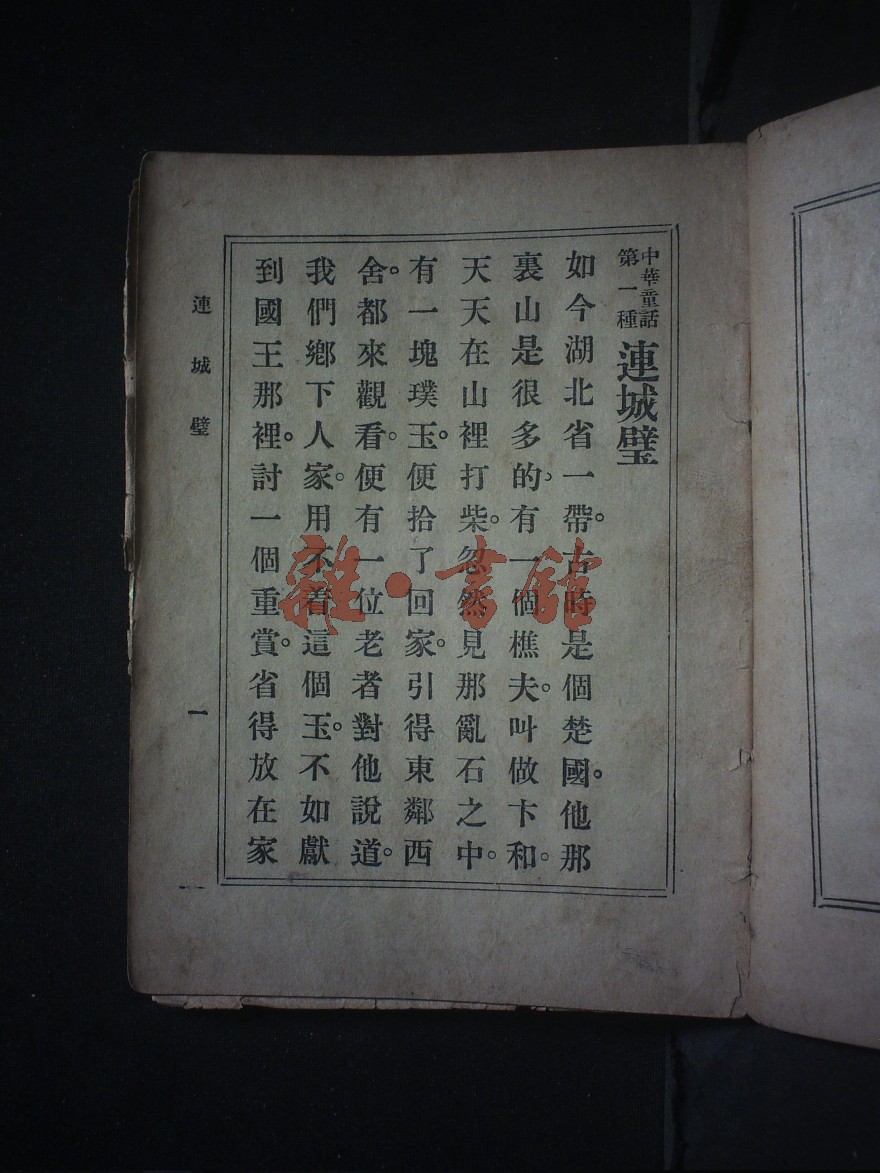 中華童話
第一種
連城璧
如今湖北省一帶。古時是個楚國。他那
裏山是很多的、有一個樵夫。叫做卞和。
天天在山裡打柴。忽然見那亂石之中。
有一塊璞玉。便拾了回家。引得東鄰西
舍。都來觀看。便有一位老者對他說道。
我們鄉下人家。用不着這個玉。不如獻
到國王那裡。討一個重賞。省得放在家
連城璧
一
雜·書館